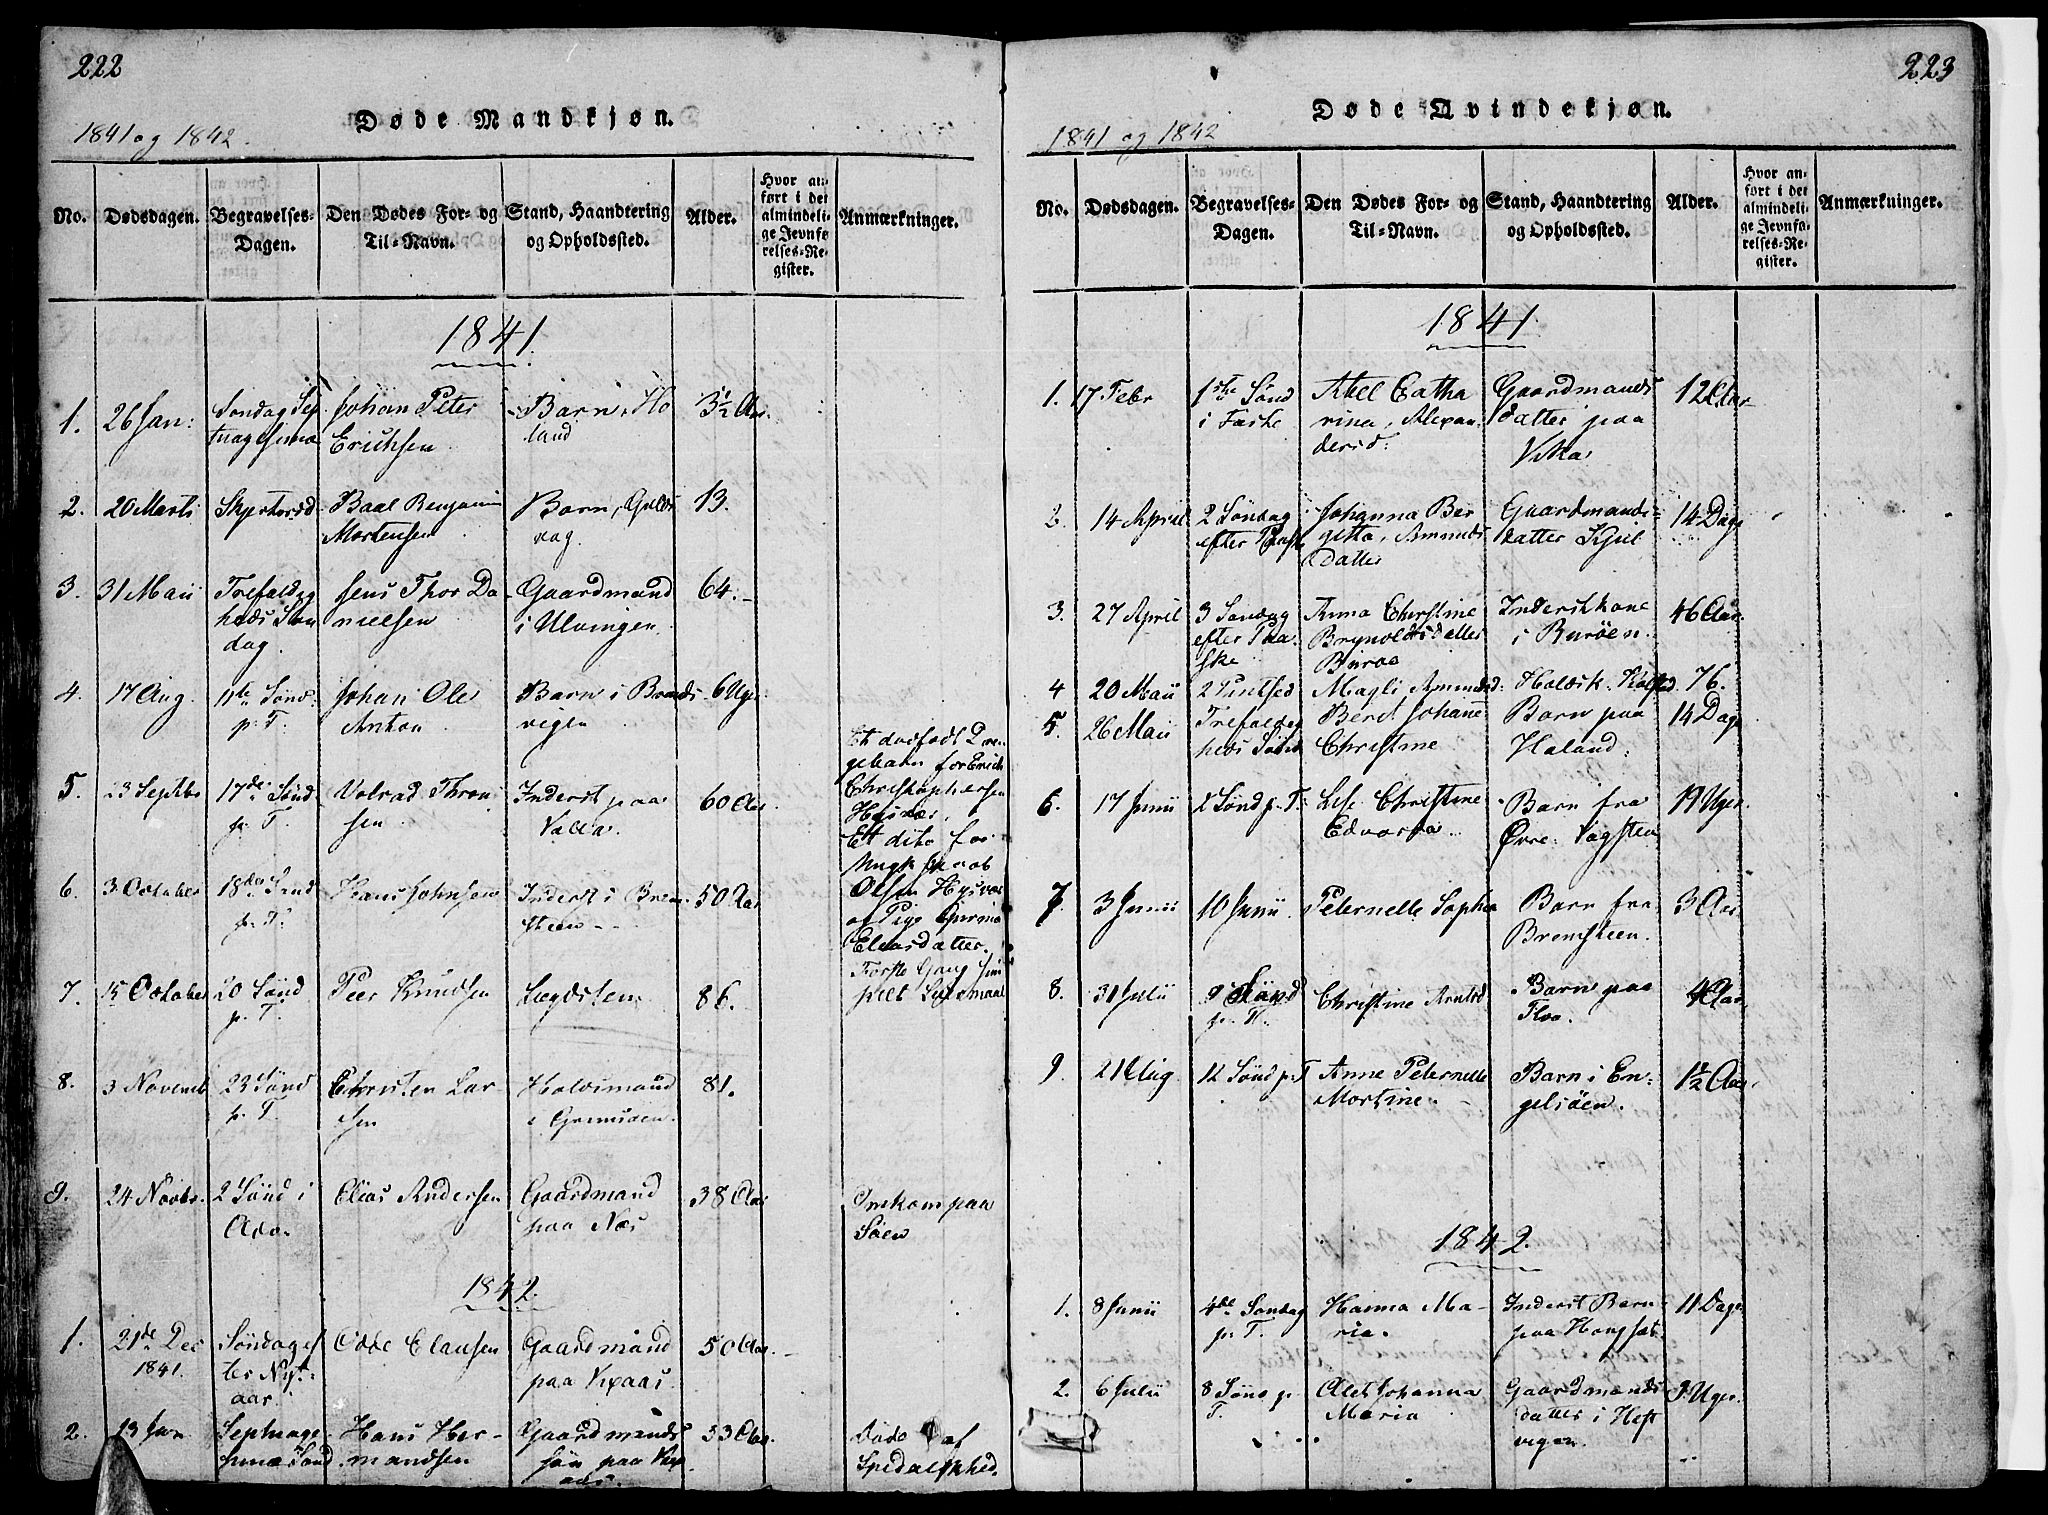 222
Døde Mandkjøn.
1841 og 1842.
No.
Dødsdagen.
Begravelses-
Dagen.
Den Dødes For- og
Til-Navn.
Stand, Haandtering
og Opholdssted.
Alder.
Hvor an-
ført i det
almindeli-
ge Jevnfø-
relses-Re-
gister.
Anmærkninger.
1841.
1.
26 Jan:
Søndag Sep
tuagesima
Johan Peter
Erichsen
Barn, Ho
land
3½ Aar.
2.
20 Marts
Skjertorsd
Baal Benjamin
Mortensen
Barn, Gulds
vag.
13.
3.
31 Maii
Trefoldig
heds Søn
dag.
Jens Thor Da-
nielsen
Gaardmand
i Ulvingen.
64.
4.
17 Aug.
11te Sønd.
p. T.
Johan Ole
Anton
Barn i Brands
vigen
6 Uger
5.
23 Septbr
17de Sønd.
p. T.
Volrad Thron
sen
Inderst paa
Valla.
60 Aar
6.
3 October
18de Sønd
p. T.
Hans Johnsen
Inderst i Brem
steen
50 Aar
7.
15 October
20 Sønd
p. T.
Peer Knudsen
Lægdslem
86.
8.
3 Novemb
23 Sønd
p. T.
Christen Lar-
sen
Holdsmand
i
81.
9.
24 Novbr.
2 Sønd i
Adv.
Elias Andersen
Gaardmand
paa Næs
38 Aar
Et dødfødt Dren
gebarn for Erich
Christophersen
Husvær.
Et dito for
Ungk. Jacob
Olsen Husvær
og Pige
Eliasdatter.
Første Gang sim
pelt Leiermaal
Omkom paa
Søen
1842.
1.
21de Dec
1841.
Søndag ef
ter Nyt-
aar.
Odde Clausen
Gaardmand
paa Vixaas
50 Aar.
2.
13 Jan
Septuage
sima Sønd.
Hans Her-
mandsen
Gaardmands
søn paa Vix
aas.
33 Aar.
Døde af
Spedalskhed.
223
Døde Qvindekjøn.
1841 og 1842
No.
Dødsdagen.
Begravelses-
Dagen.
Den Dødes For- og
Til-Navn.
Stand, Haandtering
og Opholdssted.
Alder.
Hvor an-
ført i det
almindeli-
ge Jevnfø-
relses-Re-
gister.
Anmærkninger.
1841.
1.
17 Febr
1ste Sønd
i Faste
Abel Catha
rina, Alexan-
dersd.
Gaardmands
datter paa
Vika
12 Aar
2.
14 April
2 Søndag
efter Paaske
Johanna Ber
gitta, Amunds
datter
Gaardmands-
datter Kjul
14 Dage
3.
27 April
3 Søndag
efter Paa-
ske
Anna Christine
Brynoldsdatter
Buraa
Inderstkone
i Burøen.
46 Aar.
4
20 Maii
2 Pintsed
Magli Amundsd.
Holdsk.
76.
5.
26 Maii
Trefoldig
heds Sønd
Beret Johane
Christine
Barn paa
Holand.
14 Dage
6.
17 Junii
2 Sønd p. T.
Lise Christine
Edvarda
Barn fra
Øvre Vagsten
19 Uger.
7.
3 Junii
10 Junii.
Peternelle Sophia
Barn fra
Bremsteen.
3 Aar.
8.
31 Julii
9 Sønd
p. T.
Christine Arntsd
Barn paa
Floo.
4 Aar.
9.
21 Aug.
12 Sønd p. T
Anne Peternelle
Mortine.
Barn i En-
gelsøen.
1½ Aar
1842.
1.
8 Junii
4de Søndag
p. T.
Hanna Ma-
ria.
Inderst Barn
paa
11 Dage
2.
6 Julii
8 Sønd p.
T.
Alet Johanna
Maria
Gaardmands
datter i Hest
vigen.
9 Uger.